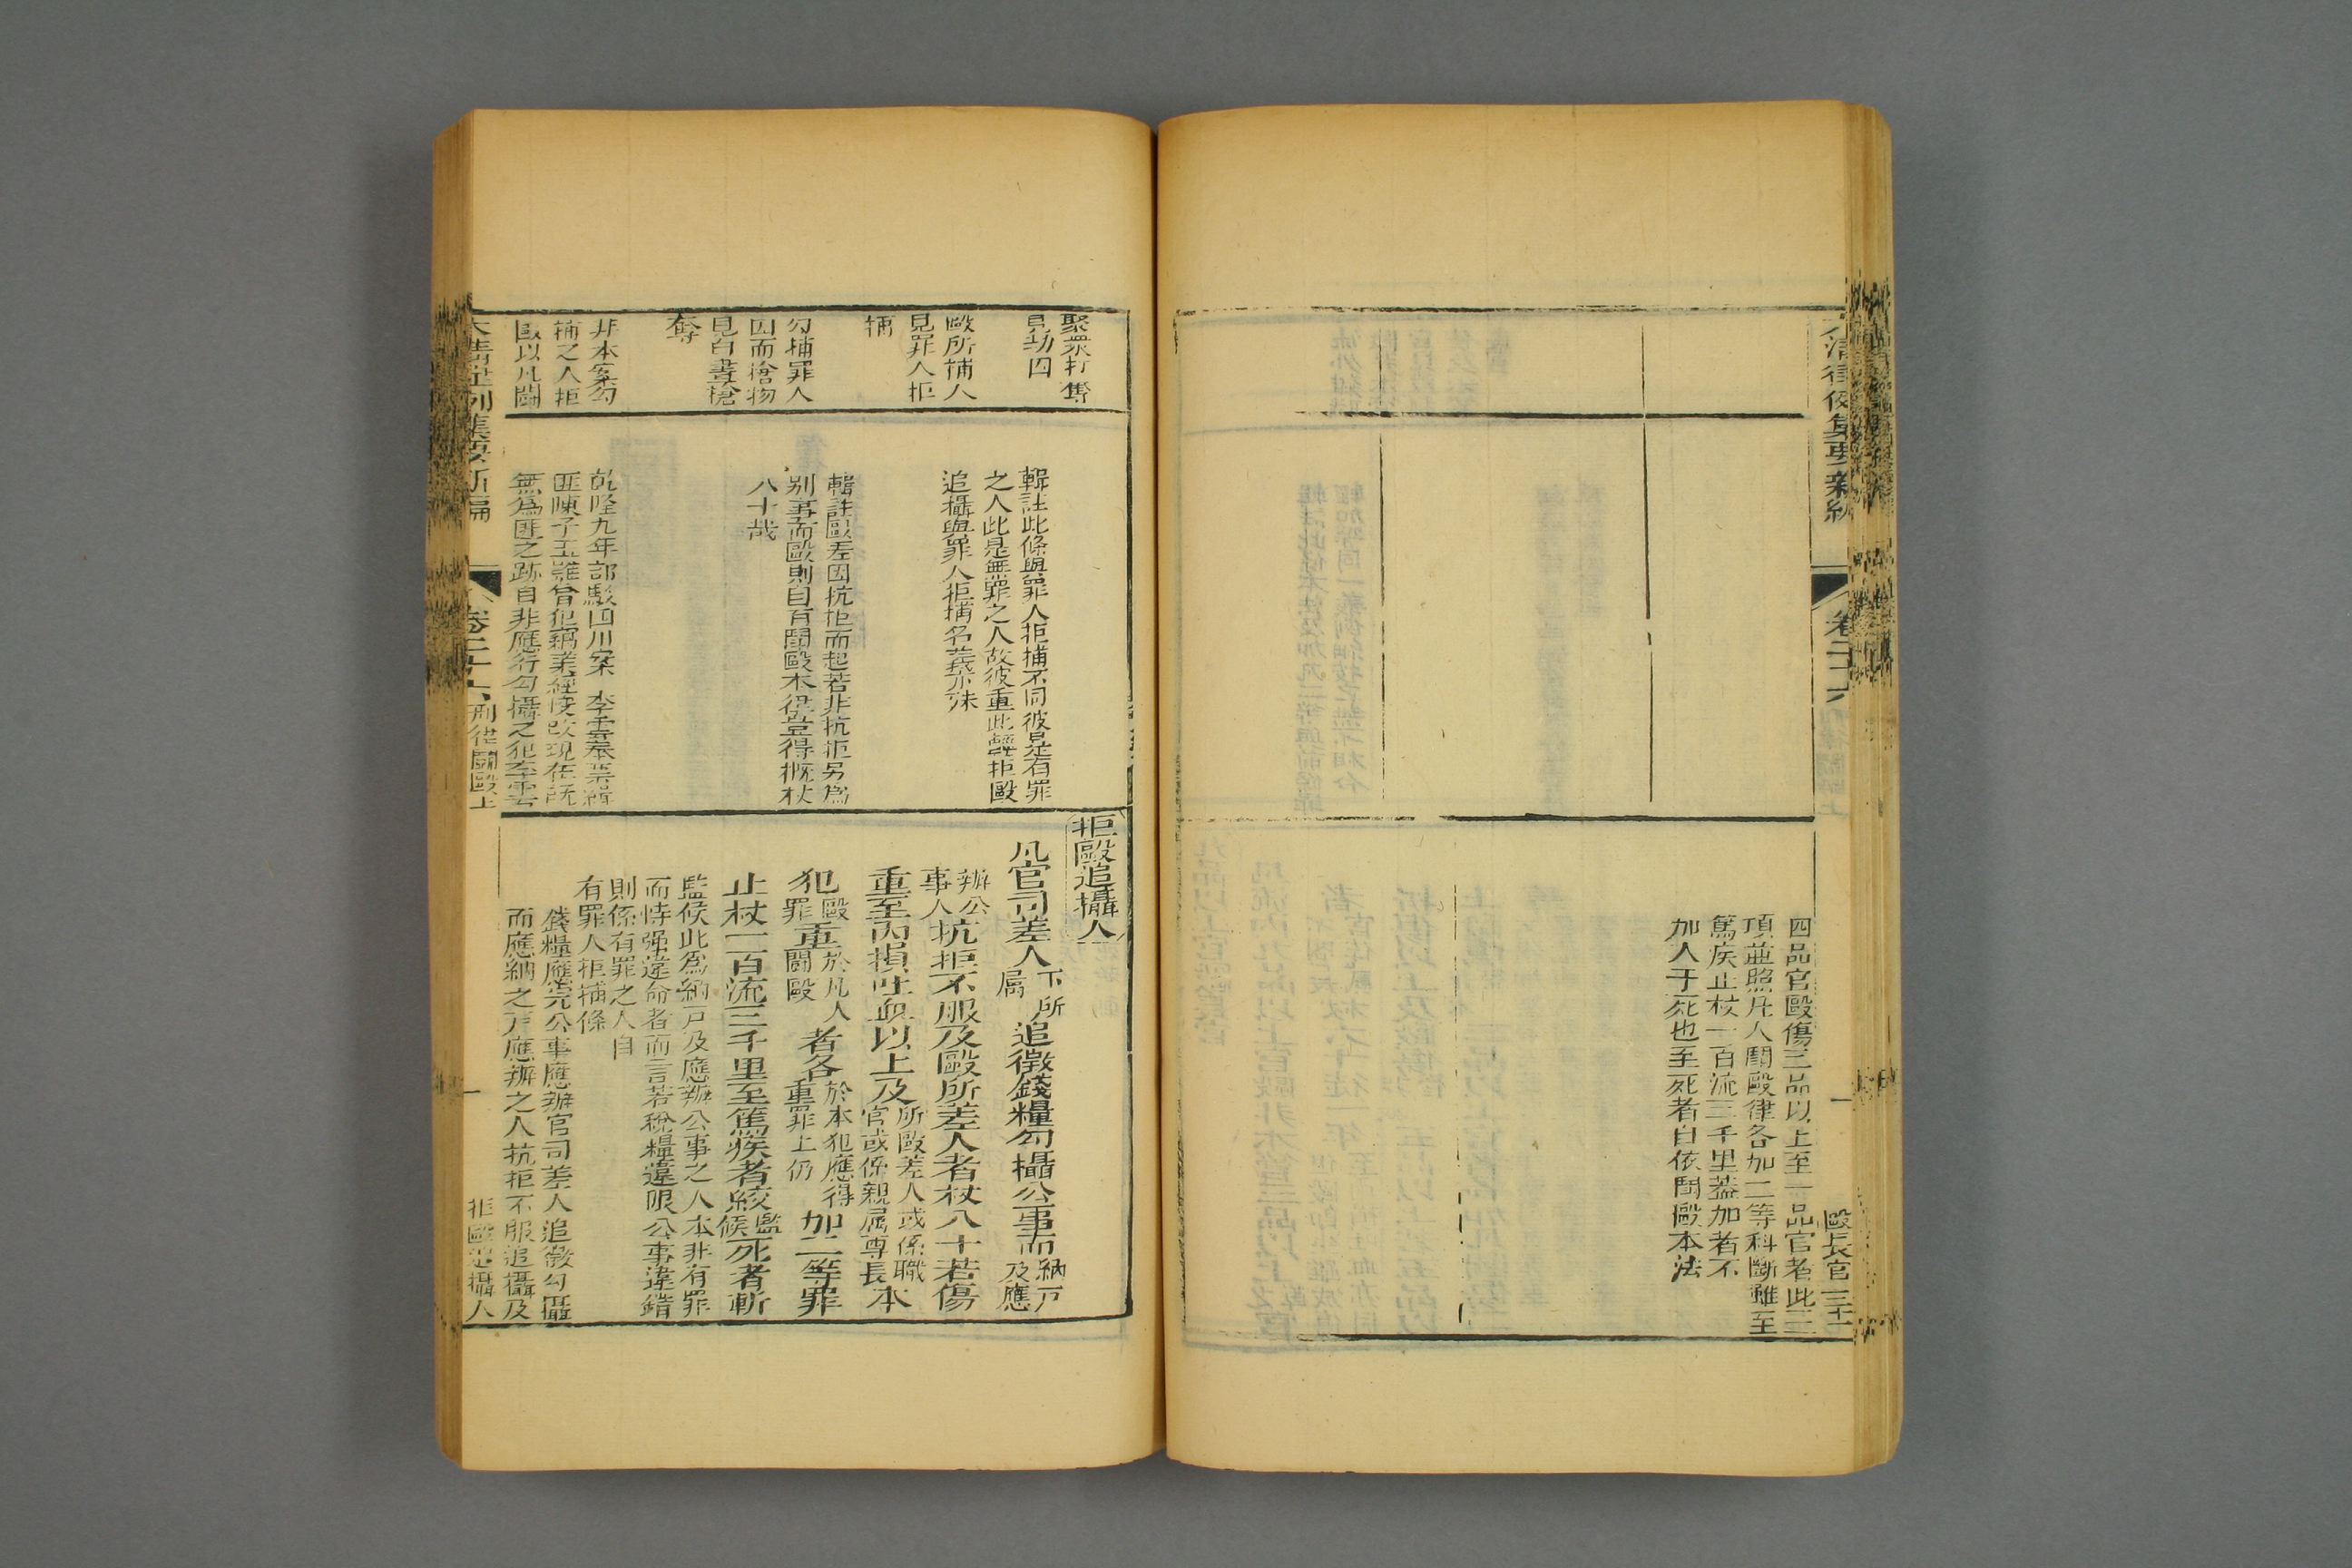 大清律例彙要新編
卷二十六
毆長官
三十一
四品官毆傷三品以上至一品官者此二
項並照凡人鬭毆律各加二等科斷雖至
篤疾止杖一百流三千里蓋加者不
加入于死也至死者自依鬥毆本法
聚眾打奪
見劫囚
毆所捕人
見罪人拒
捕
勾捕罪人
囚而搶物
見白晝搶
奪
非本案勾
捕之人拒
毆以凡鬭
輯註此條與罪人拒捕不同彼是有罪
之人此是無罪之人故彼重此輕拒毆
追攝與罪人拒捕名義亦殊
輯註毆差因抗拒而起若非抗拒另爲
別事而毆則自有鬭毆本律豈得概杖
八十哉
乾隆九年部駁四川案 李雲奉票緝
匪陳子玉雖曾犯竊業經改現在既
無爲匪之跡自非應行勾攝之犯李雲
拒毆追攝人
凡官司差人下所屬追徵錢糧勾攝公事而納戶及應
辦公事人抗拒不服及毆所差人者杖八十若傷
重至內損吐血以上及所毆差人或係職官或係親屬尊長本
犯毆罪重於凡人鬭毆者各於本犯應得重罪上仍加二等罪
止杖一百流三千里至篤疾者絞監候死者斬
監候此爲納戶及應辦公事之人本非有罪
而恃强違命者而言若稅糧違限公事違錯
則係有罪之人自
有罪人拒捕條
錢糧應完公事應辦官司差人追徵勾攝
而應納之戶應辦之人抗拒不服追攝及
大清律例彙要新編
卷二十六
刑律鬭毆上
一
拒毆追攝人